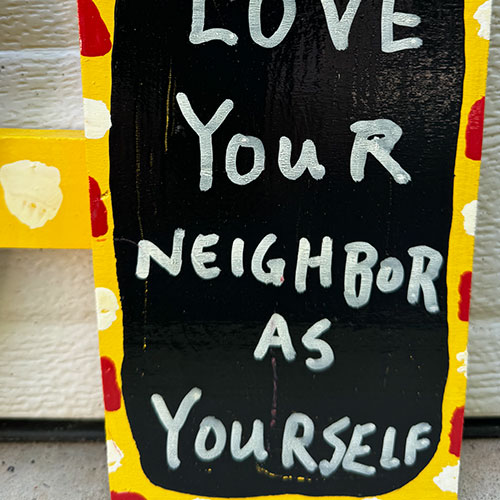 LOVE
YouR
NEIGHBoR
AS
YouRSELF